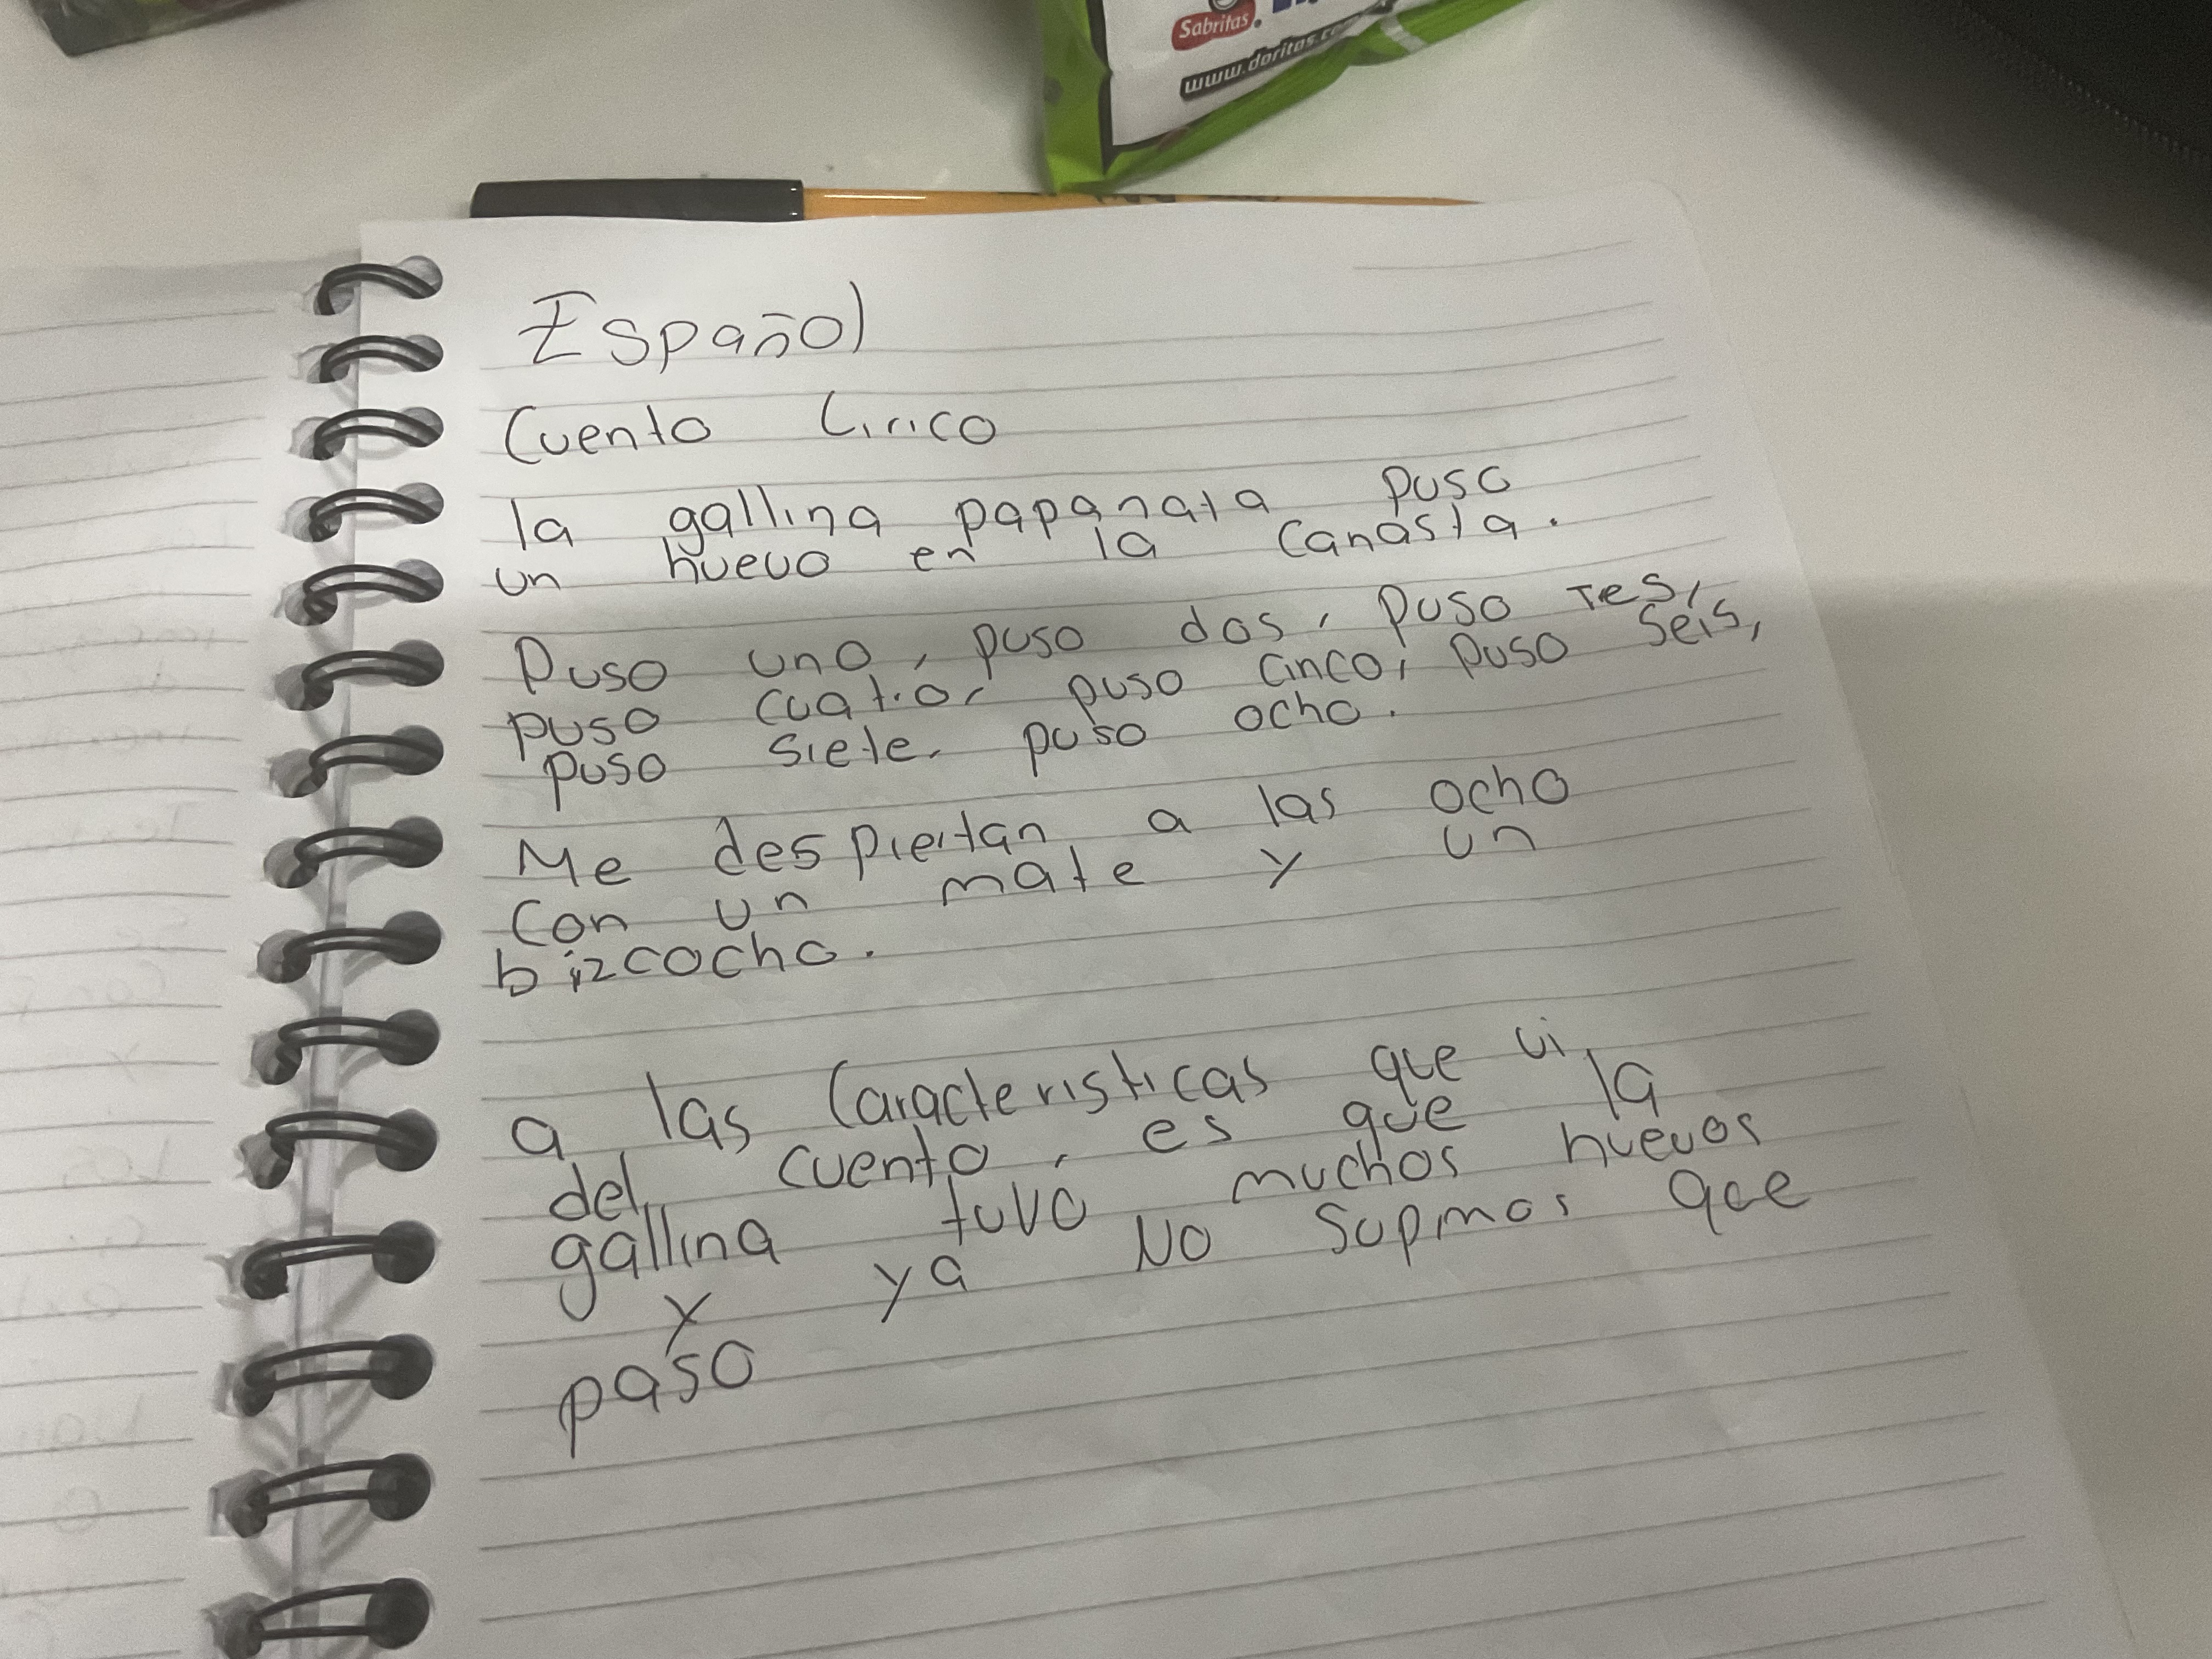 Sabritas.
www.doritos.co
Español
Cuento Lirico
la gallina papanata puso
un huevo en la canasta.
Puso uno, puso dos, puso tes,
puso cuatro, puso cinco, puso seis,
puso siete, puso ocho.
Me despiertan a las ocho
con un mate y un
bizcocho.
a las Caracteristicas que vi
del cuento, es que la
gallina tuvo muchos huevos
y ya No supmos que
paso